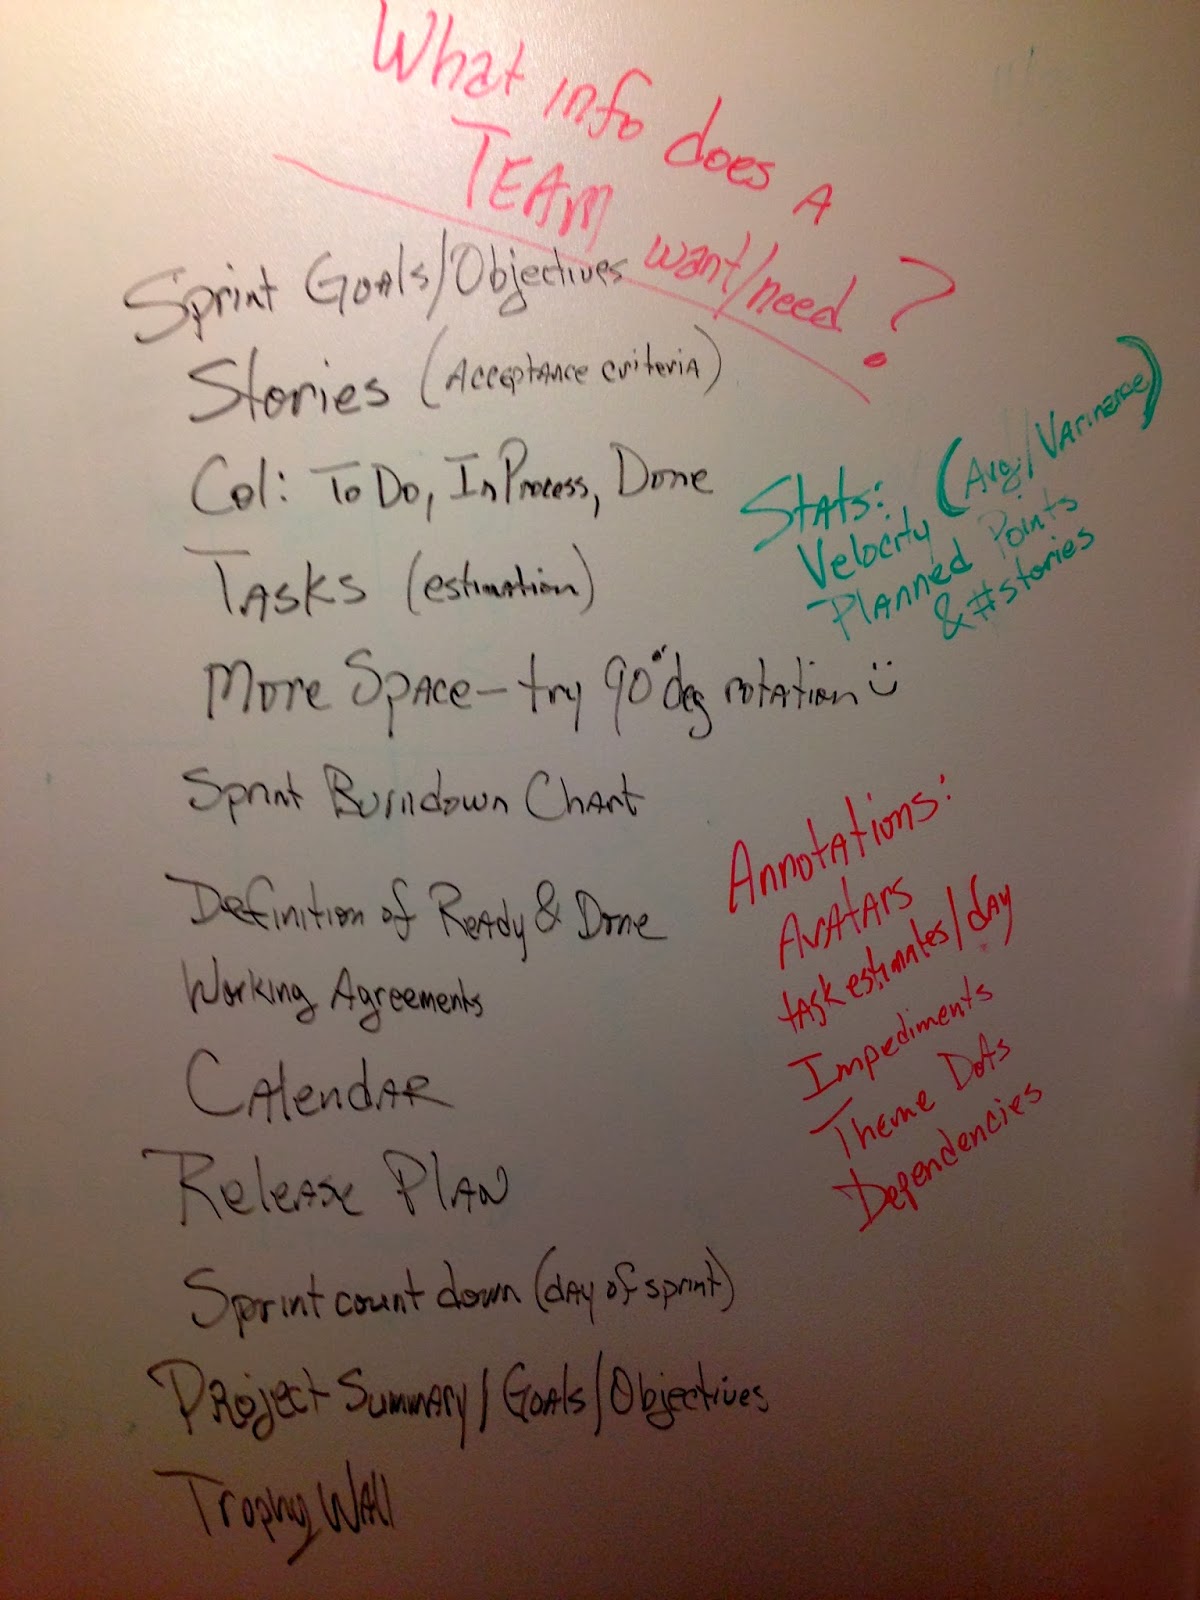 What info does A
TEAM want/need?
Sprint Goals/Objectives
Stories (Acceptance criteria)
Col: To Do, In Process, Done
Tasks (estimation)
More Space - try 90° deg rotation ü
Sprint Burndown Chart
Definition of Ready & Done
Working Agreements
Calendar
Release Plan
Sprint count down (day of sprint)
Project Summary/Goals/Objectives
Trophy Wall
Stats:
Velocity (Avg./Varinance)
Planned Points
& #stories
Annotations:
Avatars
task estimates/day
Impediments
Theme Dots
Dependencies